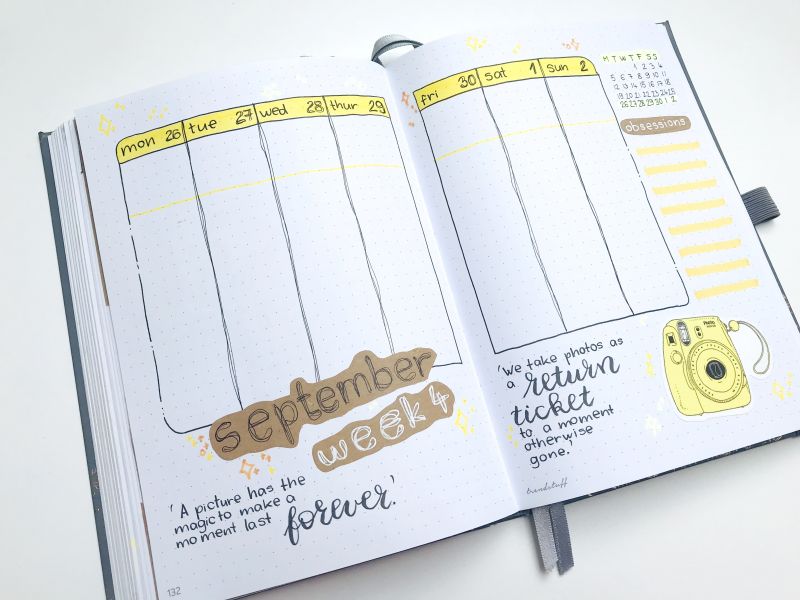 mon 26 tue 27 wed 28 thur 29
september
week 4
'A picture has the
magic to make a
moment last forever.'
132
fri 30 sat 1 sun 2
M T W T F S S
1 2 3 4
5 6 7 8 9 10 11
12 13 14 15 16 17 18
19 20 21 22 23 24 25
26 27 28 29 30 1 2
obsessions
'We take photos as
a return
ticket
to a moment
otherwise
gone.'